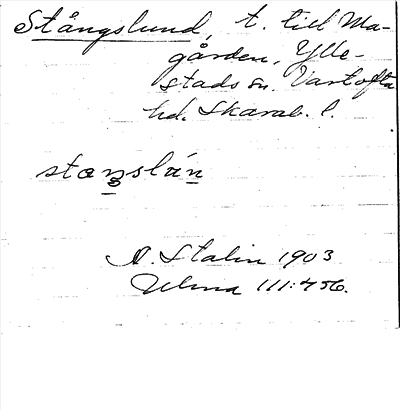 Stångslund, t. till Ma-
gården, Ylle-
stads sn. Vartofta
hd. Skarab. l.
staŋslun
A. Stalin 1903
Ulma 111:456.